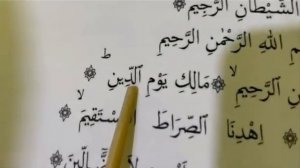 الشَّيْطَانِ الرَّجِيمِ
اللهِ الرَّحْمٰنِ الرَّحِيمِ
الرَّحِيمِ ۙ مَالِكِ يَوْمِ ٱلدِّينِ ۗ
اِهْدِنَا ٱلصِّرَاطَ ٱلْمُسْتَقِيمَ ۙ